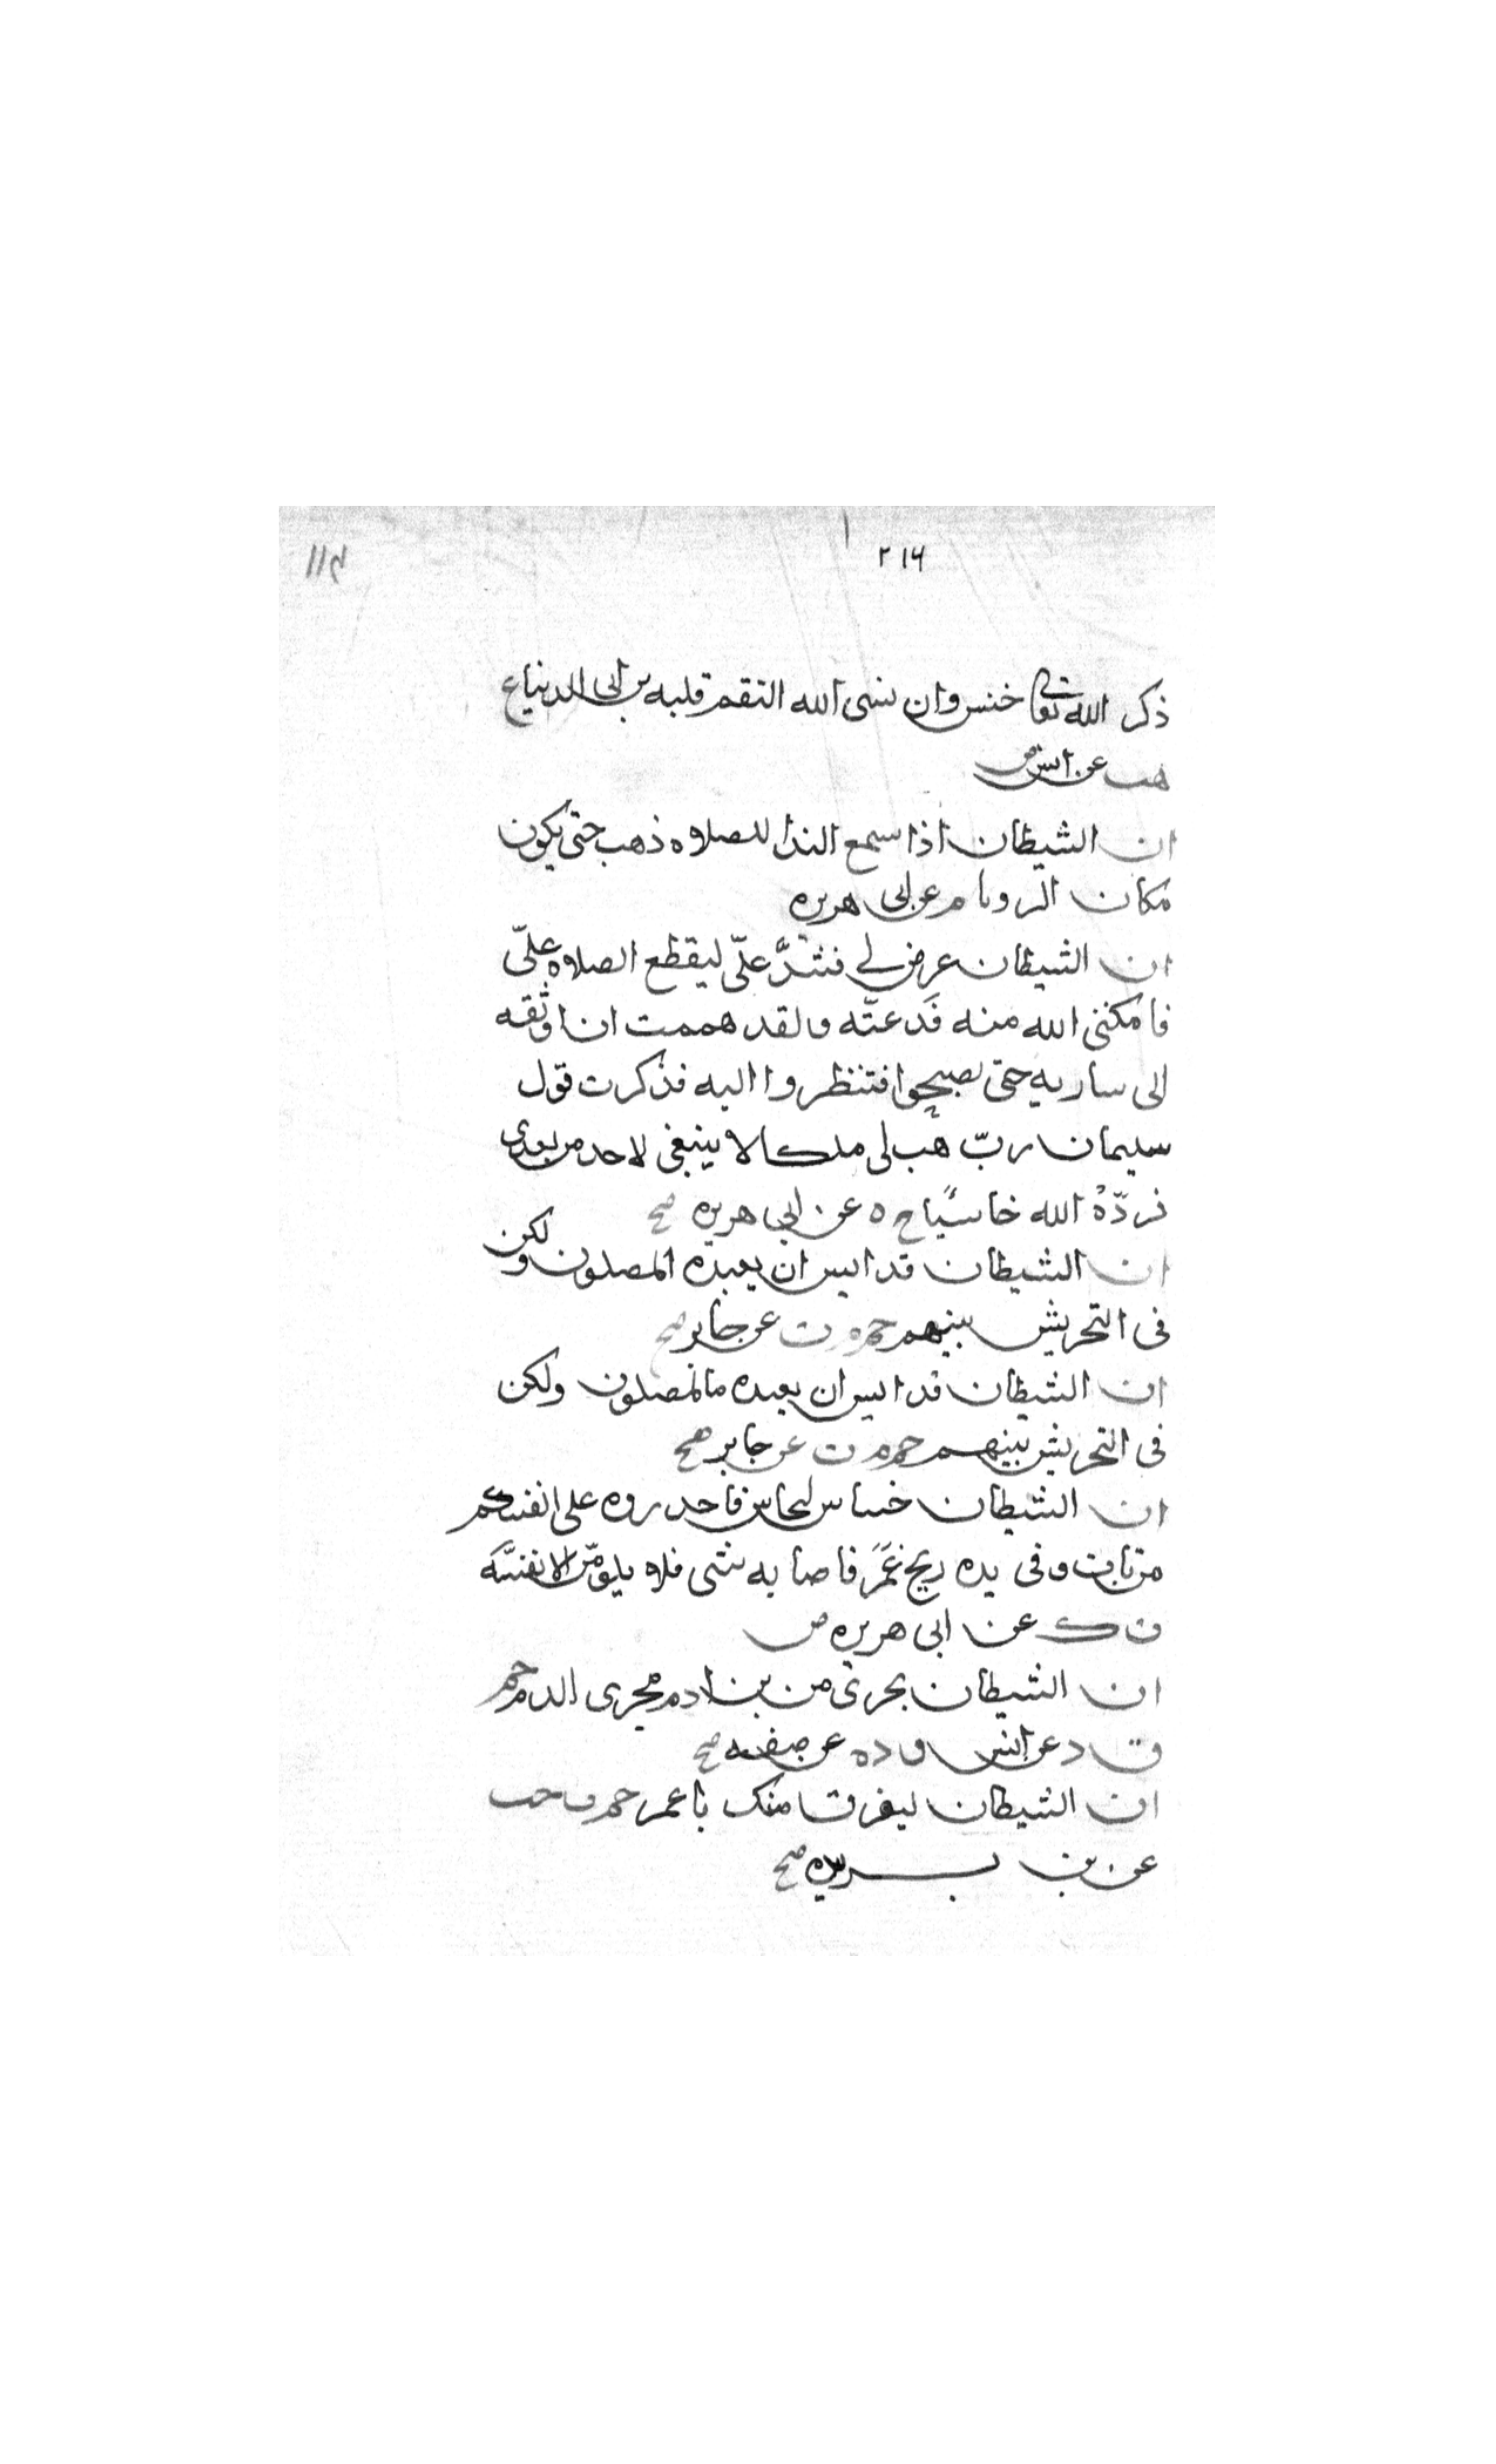 ٢١٦
ذكر الله تعالى خنس وان نسى الله التقم قلبه بن ابى الدنيا ع
هب عن انس ض
ان الشيطان اذا سمع الندا للصلاه ذهب حتى يكون
مكان الروحا م عن ابى هريره
ان الشيطان عرض لي فشدَّ علىّ ليقطع الصلاه علىّ
فامكننى الله منه فَدعتّه ولقد هممت ان اوثقه
الى ساريه حتى تصبحوا فتنظروا اليه فذكرت قول
سليمان ربّ هب لى ملكا لا ينبغى لاحد من بعدى
فردّهُ الله خاسئًا خ ه عن ابى هريره صح
ان الشيطان قد ايس ان يعبده المصلون ولكن
فى التحريش بينهم حم م ت عن جابر صح
ان الشيطان قد ايس ان يعبده المصلون ولكن
فى التحريش بينهم حم م ت عن جابر صح
ان الشيطان حساس لحاس فاحدروه على انفسكم
من بات وفى يده ريح غَمَر فاصابه شى فلا يلومنّ الا نفسه
ت ك عن ابى هريره ض
ان الشيطان يحرى من بن ادم مجرى الدم حم
ق د عن انس ق د ه عن صفيه صح
ان الشيطان ليفرق منك يا عمر حم ت حب
عن بن بريده صح